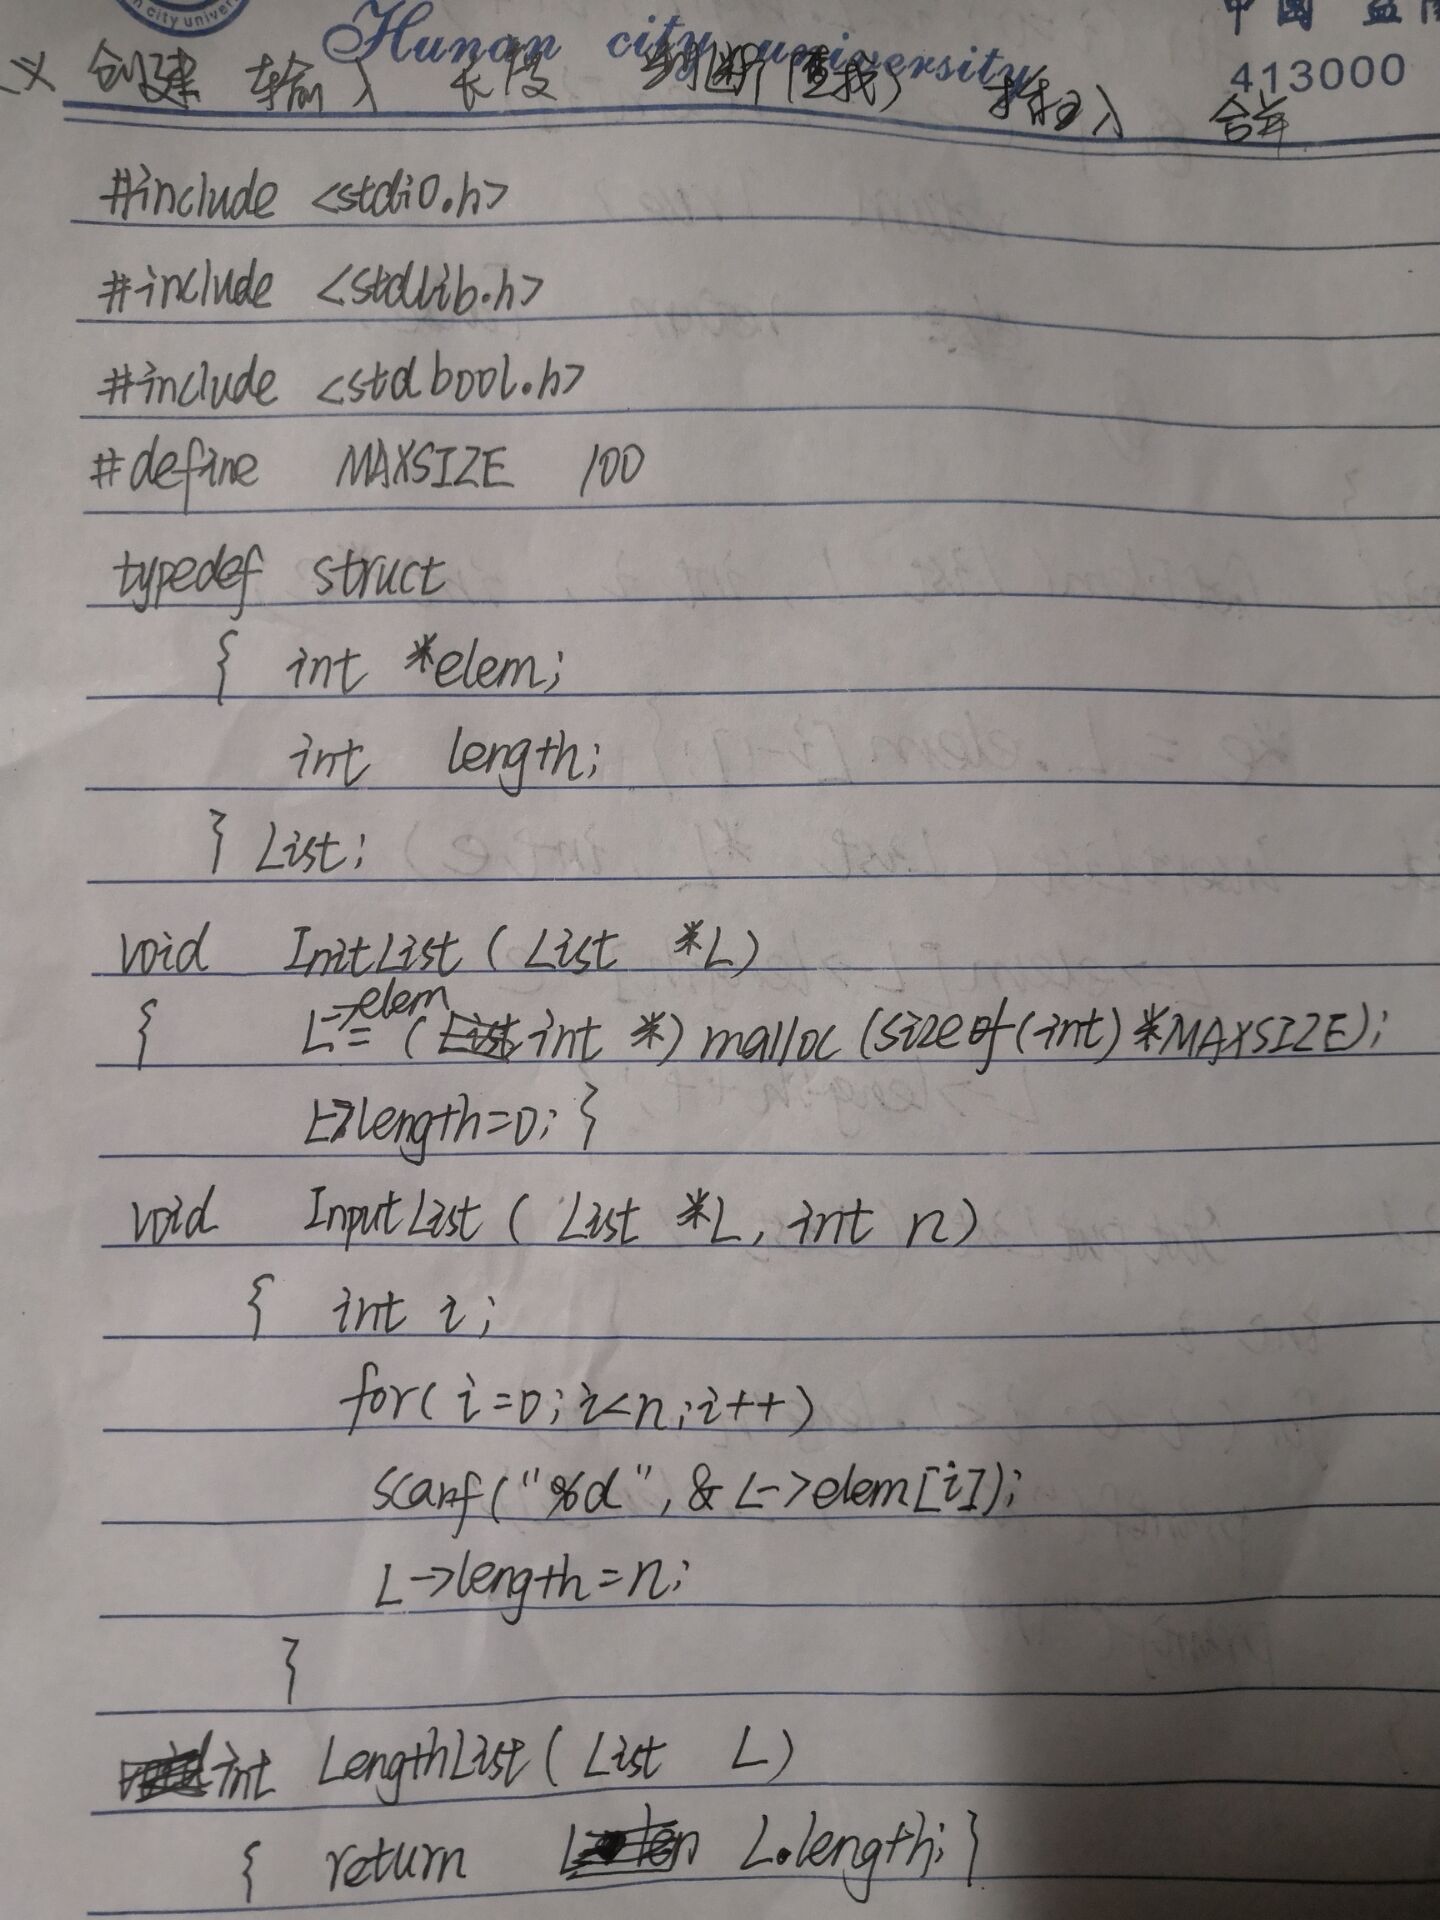 n city univers
Hunan city university
中国 益
413000
义 创建 输入 长度 判断(查找) 插入 合并
#include <stdio.h>
#include <stdlib.h>
#include <stdbool.h>
#define MAXSIZE 100
typedef struct
{ int *elem;
int length;
} List;
void InitList ( List *L)
{ L->elem = (int *) malloc (sizeof(int) *MAXSIZE);
L->length=0; }
void InputList ( List *L, int n)
{ int i;
for( i=0; i<n; i++)
scanf("%d", & L->elem[i]);
L->length=n;
}
int LengthList( List L)
{ return L.length; }